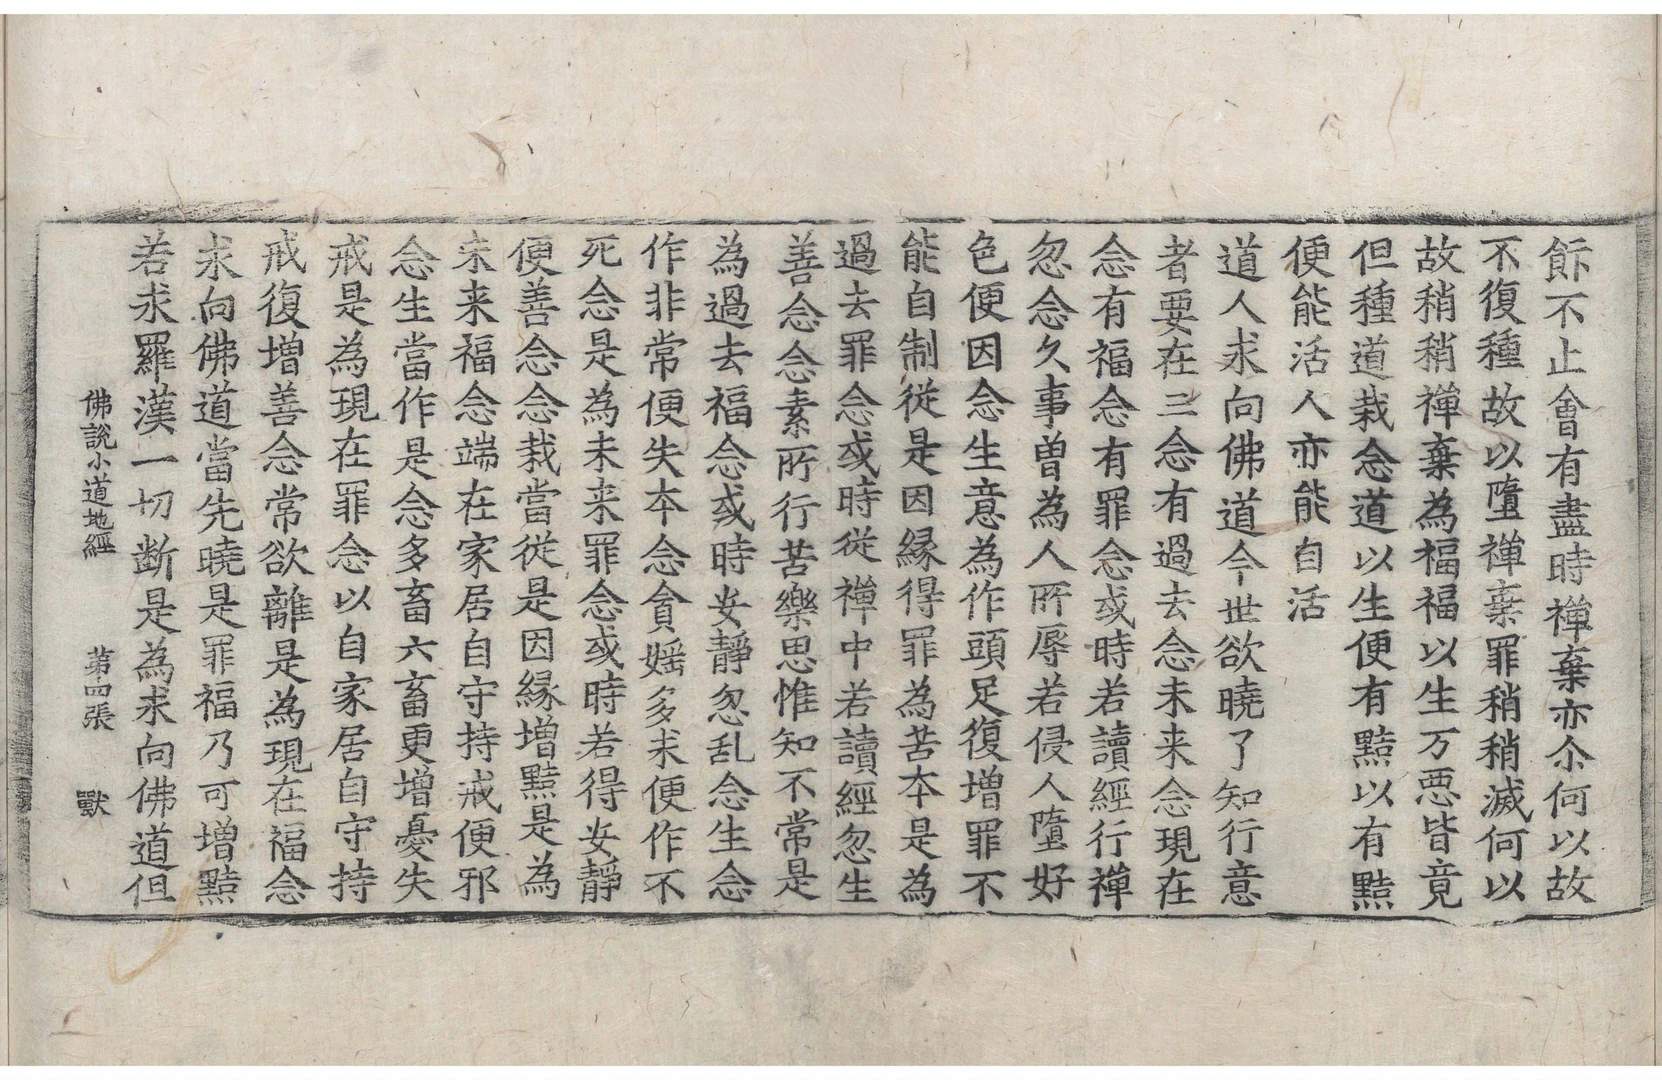 飾不止會有盡時禪棄亦尒何以故
不復種故以墮禪棄罪稍稍滅何以
故稍稍禪棄為福福以生万惡皆竟
但種道栽念道以生便有黠以有黠
便能活人亦能自活
道人求向佛道今世欲曉了知行意
者要在三念有過去念未来念現在
念有福念有罪念或時若讀經行禪
忽念久事曽為人所辱若侵人墮好
色便因念生意為作頭足復增罪不
能自制從是因緣得罪為苦本是為
過去罪念或時從禪中若讀經忽生
善念念素所行苦樂思惟知不常是
為過去福念或時安靜忽乱念生念
作非常便失本念貪婬多求便作不
死念是為未来罪念或時若得安靜
便善念念栽當從是因緣增黠是為
未来福念端在家居自守持戒便邪
念生當作是念多畜六畜更增憂失
戒是為現在罪念以自家居自守持
戒復增善念常欲離是為現在福念
求向佛道當先曉是罪福乃可增黠
若求羅漢一切断是為求向佛道但
佛說小道地經　第四張　獸